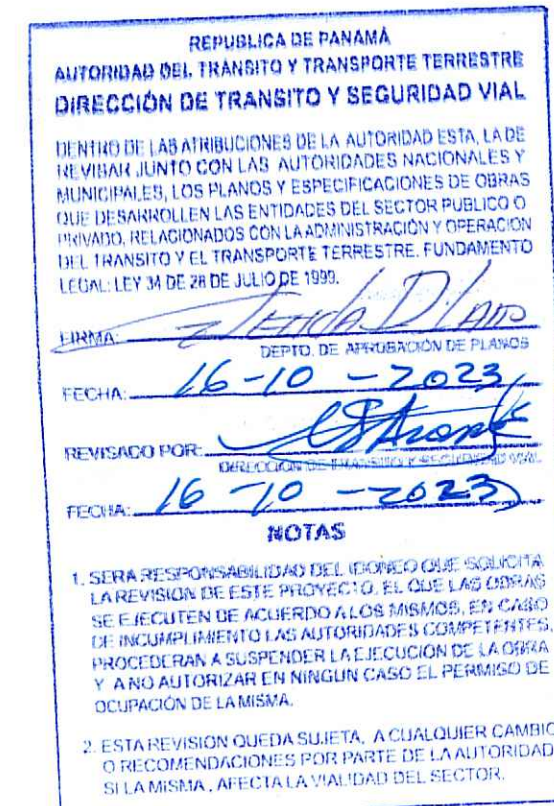 REPUBLICA DE PANAMÁ
AUTORIDAD DEL TRÁNSITO Y TRANSPORTE TERRESTRE
DIRECCIÓN DE TRANSITO Y SEGURIDAD VIAL
DENTRO DE LAS ATRIBUCIONES DE LA AUTORIDAD ESTA, LA DE
REVISAR JUNTO CON LAS AUTORIDADES NACIONALES Y
MUNICIPALES, LOS PLANOS Y ESPECIFICACIONES DE OBRAS
QUE DESARROLLEN LAS ENTIDADES DEL SECTOR PUBLICO O
PRIVADO, RELACIONADOS CON LA ADMINISTRACIÓN Y OPERACIÓN
DEL TRANSITO Y EL TRANSPORTE TERRESTRE. FUNDAMENTO
LEGAL: LEY 34 DE 28 DE JULIO DE 1999.
FIRMA:
DEPTO. DE APROBACIÓN DE PLANOS
FECHA: 16-10-2023
REVISADO POR:
DIRECCIÓN DE TRANSITO Y SEGURIDAD VIAL
FECHA: 16-10-2023
NOTAS
1. SERA RESPONSABILIDAD DEL IDONEO QUE SOLICITA
LA REVISION DE ESTE PROYECTO, EL QUE LAS OBRAS
SE EJECUTEN DE ACUERDO A LOS MISMOS, EN CASO
DE INCUMPLIMIENTO LAS AUTORIDADES COMPETENTES,
PROCEDERAN A SUSPENDER LA EJECUCION DE LA OBRA
Y A NO AUTORIZAR EN NINGUN CASO EL PERMISO DE
OCUPACIÓN DE LA MISMA.
2. ESTA REVISION QUEDA SUJETA, A CUALQUIER CAMBIO
O RECOMENDACIONES POR PARTE DE LA AUTORIDAD
SI LA MISMA, AFECTA LA VIALIDAD DEL SECTOR.